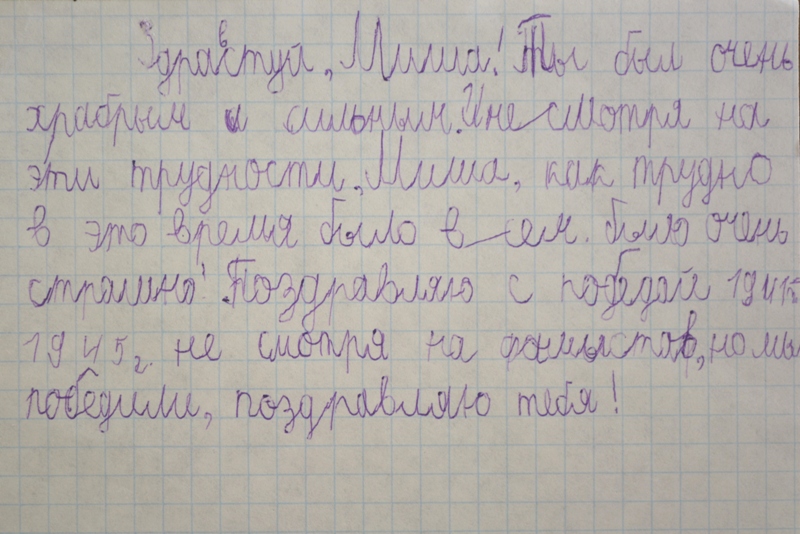 Здраствуй, Миша! Ты был очень
храбрым и сильным. И не смотря на
эти трудности, Миша, как трудно
в это время было в сем. было очень
страшно! Поздравляю с победой 1941-
1945г. не смотря на фашыстов, но мы
победили, поздравляю тебя!